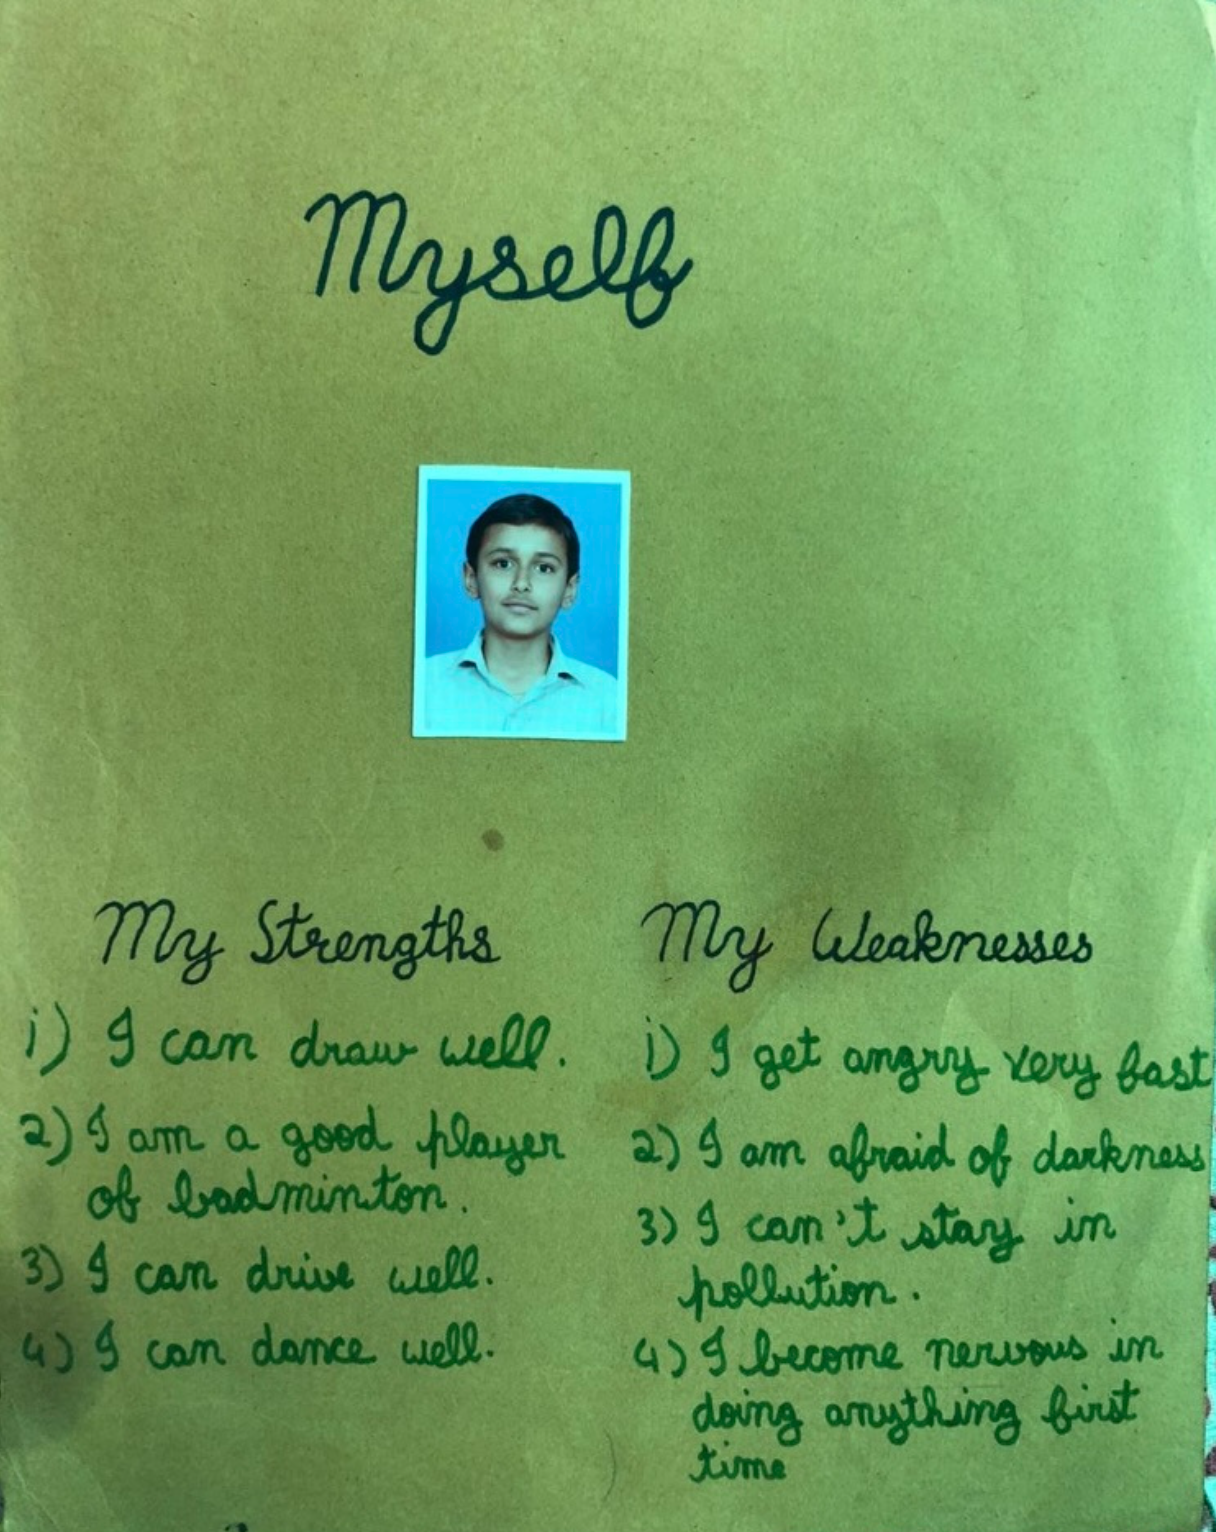 Myself
My Strengths
1) I can draw well.
2) I am a good player
of badminton.
3) I can drive well.
4) I can dance well.
My Weaknesses
1) I get angry very fast
2) I am afraid of darkness
3) I can't stay in
pollution.
4) I become nervous in
doing anything first
time